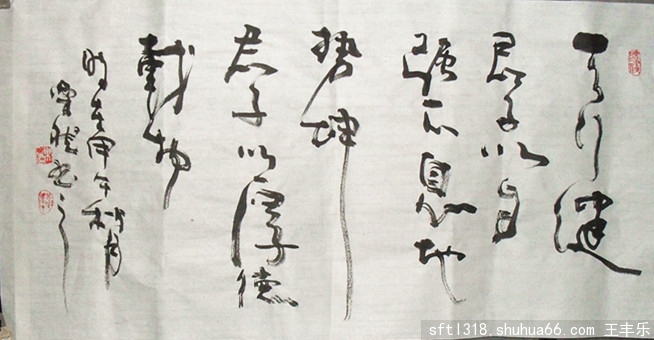 天行健
君子以自
强不息地
势坤
君子以厚德
载物
时在甲午秋月
书
sftl318.shuhua66.com 王丰乐